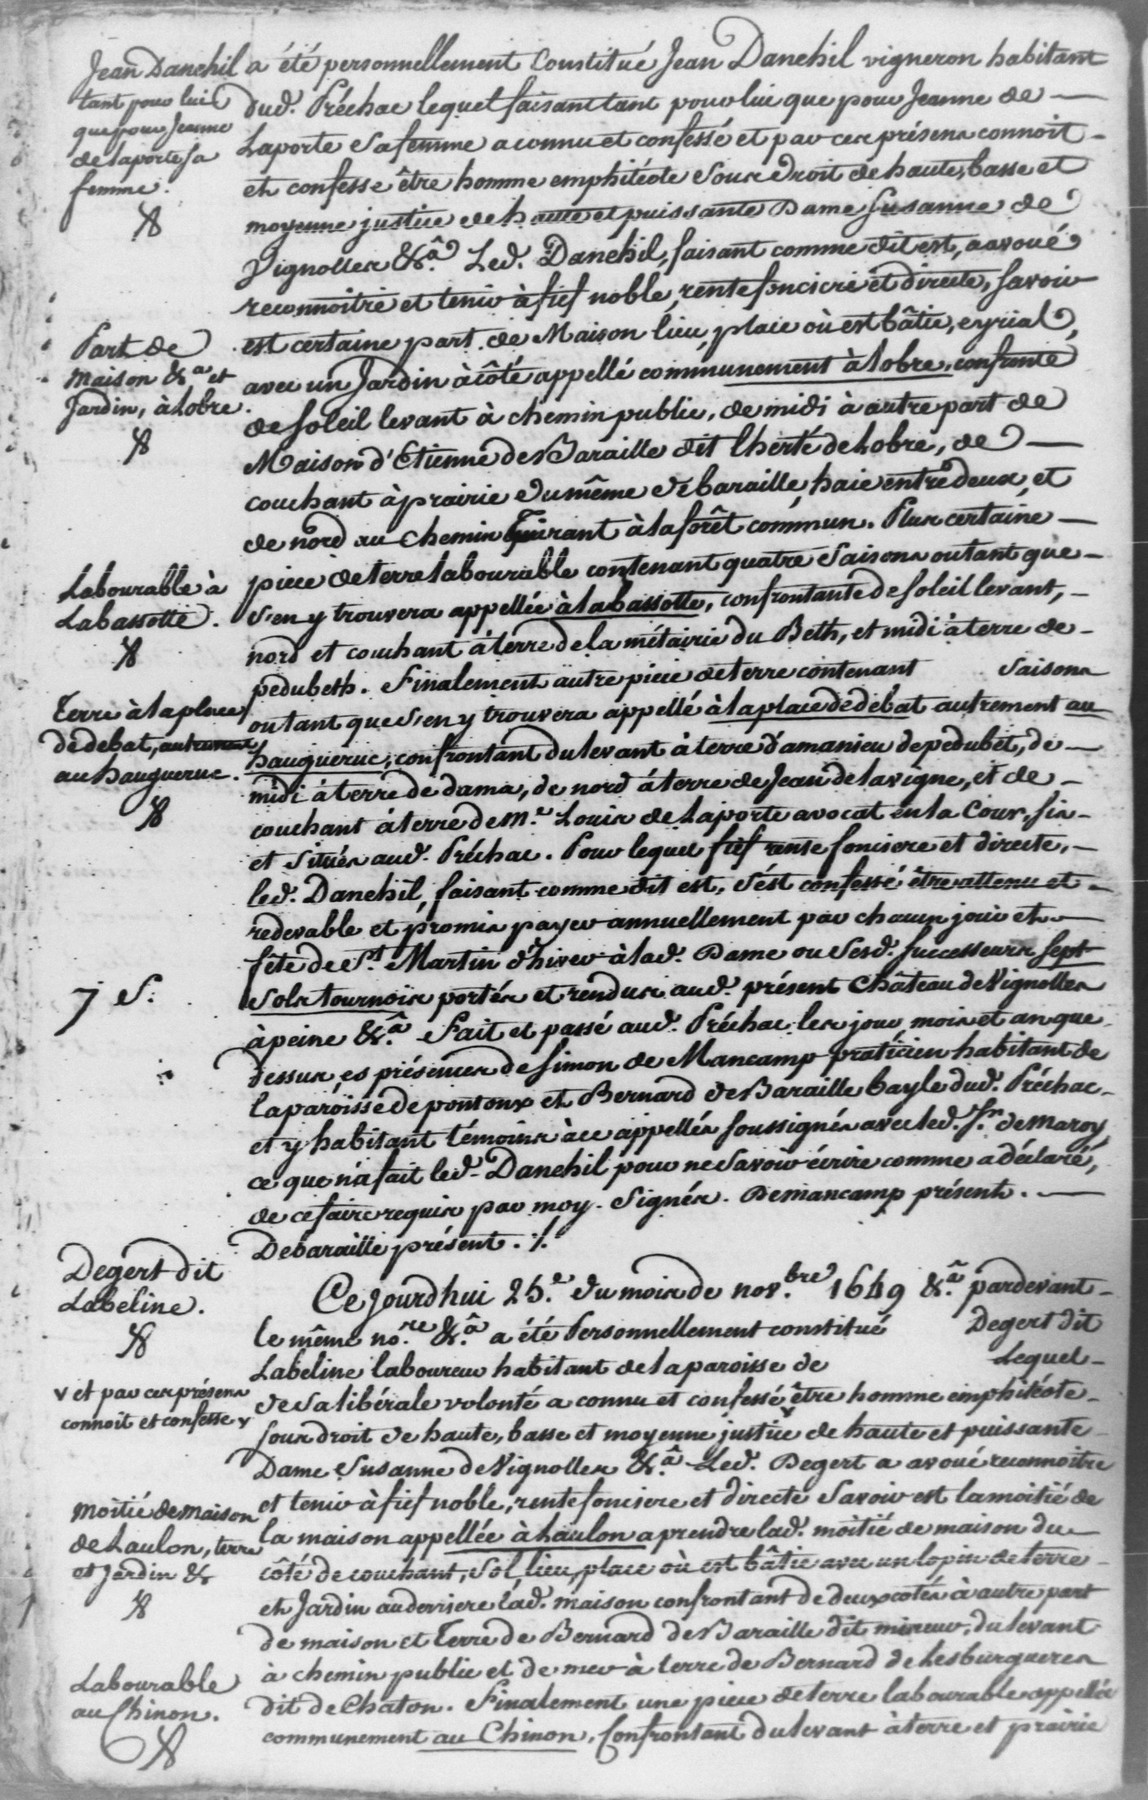 Jean Danehil
tant pour lui
que pour Jeanne
de Laporte sa
femme.
a été personnellement Constitué Jean Danehil vigneron habitant
dud. Préchac lequel faisant tant pour lui que pour Jeanne de
Laporte sa femme a connu et confessé et par ces présens connoit
et confesse être homme emphitéote sous droit de haute, basse et
moyenne justice de haute et puissante Dame Susanne de
Vignolles &a. Led. Danehil, faisant comme dit est, a avoué
reconnoitre et tenir à fief noble, rente fonciere et directe, savoir
Part de
Maison &a et
Jardin, à Lobre.
est certaine part de Maison lieu, place où est bâtie, eyrial,
avec un Jardin à côté appellé communement à Lobre, confronte
de soleil levant à chemin public, de midi à autre part de
Maison d'Etienne de Baraille dit Lherté de Lobre, de
couchant à prairie du même de baraille, haie entre deux, et
de nord au chemin tirant à la forêt commun. Plus certaine
Labourable à
Labassotte.
piece de terre labourable contenant quatre saisons ou tant que
s'en y trouvera appellée à labassotte, confrontante de soleil levant,
nord et couchant à terre de la métairie du Beth, et midi à terre de
pedubeth. Finalement autre piece de terre contenant saisons
Terre à la place
de debat, autrement
au haugueruc.
ou tant que s'en y trouvera appellé à la place de debat autrement au
hauguruc, confrontant du levant à terre d'amanieu de pedubet, de
midi à terre de dama, de nord à terre de Jean de lavigne, et de
couchant à terre de Me. Louis de Laporte avocat en la Cour, sis
et situés aud. Préchac. Pour lequel fief rente fonsiere et directe,
led. Danehil, faisant comme dit est, s'est confessé être attenu et
redevable et promis payer annuellement par chacun jour et
fête de St. Martin d'hiver à lad. Dame ou sesd. successeurs sept
7 S.
sols tournois portés et rendus aud. présent Château de Vignolles
à peine &a. Fait et passé aud. Préchac les jour, mois et an que
dessus, es présences de Simon de Mancamp praticien habitant de
la paroisse de pontonx et Bernard de Baraille bayle dud. Préchac
et y habitant témoins à ce appellés soussignés avec led. Sr. de Maroy,
ce que n'a fait led. Danehil pour ne savoir écrire comme a déclaré,
de ce faire requis par moy. Signés. Demancamp présent.
Debaraille présent. /.
Degert dit
Labeline.
Ce jourd'hui 25.e du mois de nov.bre 1649 &a pardevant
le même no.re &a a été Personnellement constitué Degert dit
Labeline laboureur habitant de la paroisse de Lequel
v et par ces présens
connoit et confesse v
de sa libérale volonté a connu et confessé v être homme emphitéote
sous droit de haute, basse et moyenne justice de haute et puissante
Dame Susanne de Vignolles &a. Led. Degert a avoué reconnoitre
Moitié de maison
de Laulon, terre
et Jardin &
et tenir à fief noble, rente fonsiere et directe Savoir est la moitié de
la maison appellée à Laulon a prendre lad. moitié de maison du
côté de couchant, sol, lieu, place où est bâtie avec un lopin de terre
et Jardin au derriere lad. maison confrontant de deux cotés à autre part
de maison et Terre de Bernard de Baraille dit mireur, du levant
à chemin public et de mer à terre de Bernard de Lesburgueres
Labourable
au Chinon.
dit de Chaton. Finalement une piece de terre labourable appellée
communement au Chinon, Confrontant du levant à terre et prairie